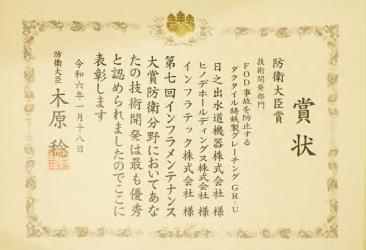 賞状
防衛大臣賞
技術開発部門
FOD事故を防止する
ダクタイル鋳鉄製グレーチングGR-U
日之出水道機器株式会社 様
ヒノデホールディングス株式会社 様
インフラテック株式会社 様
第七回インフラメンテナンス
大賞防衛分野においてあな
たの技術開発は最も優秀
と認められましたのでここに
表彰します
令和六年一月十八日
防衛大臣
木原 稔